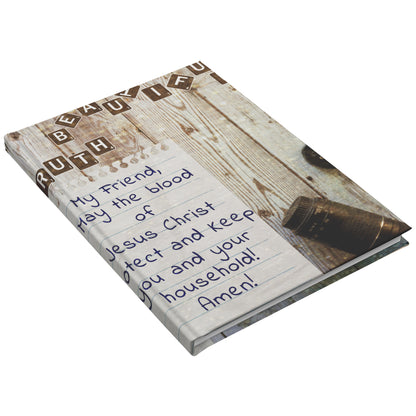 BEAUTIFU
RUTH
My Friend,
May the blood
of
Jesus Christ
otect and Keep
you and your
household!
Amen!